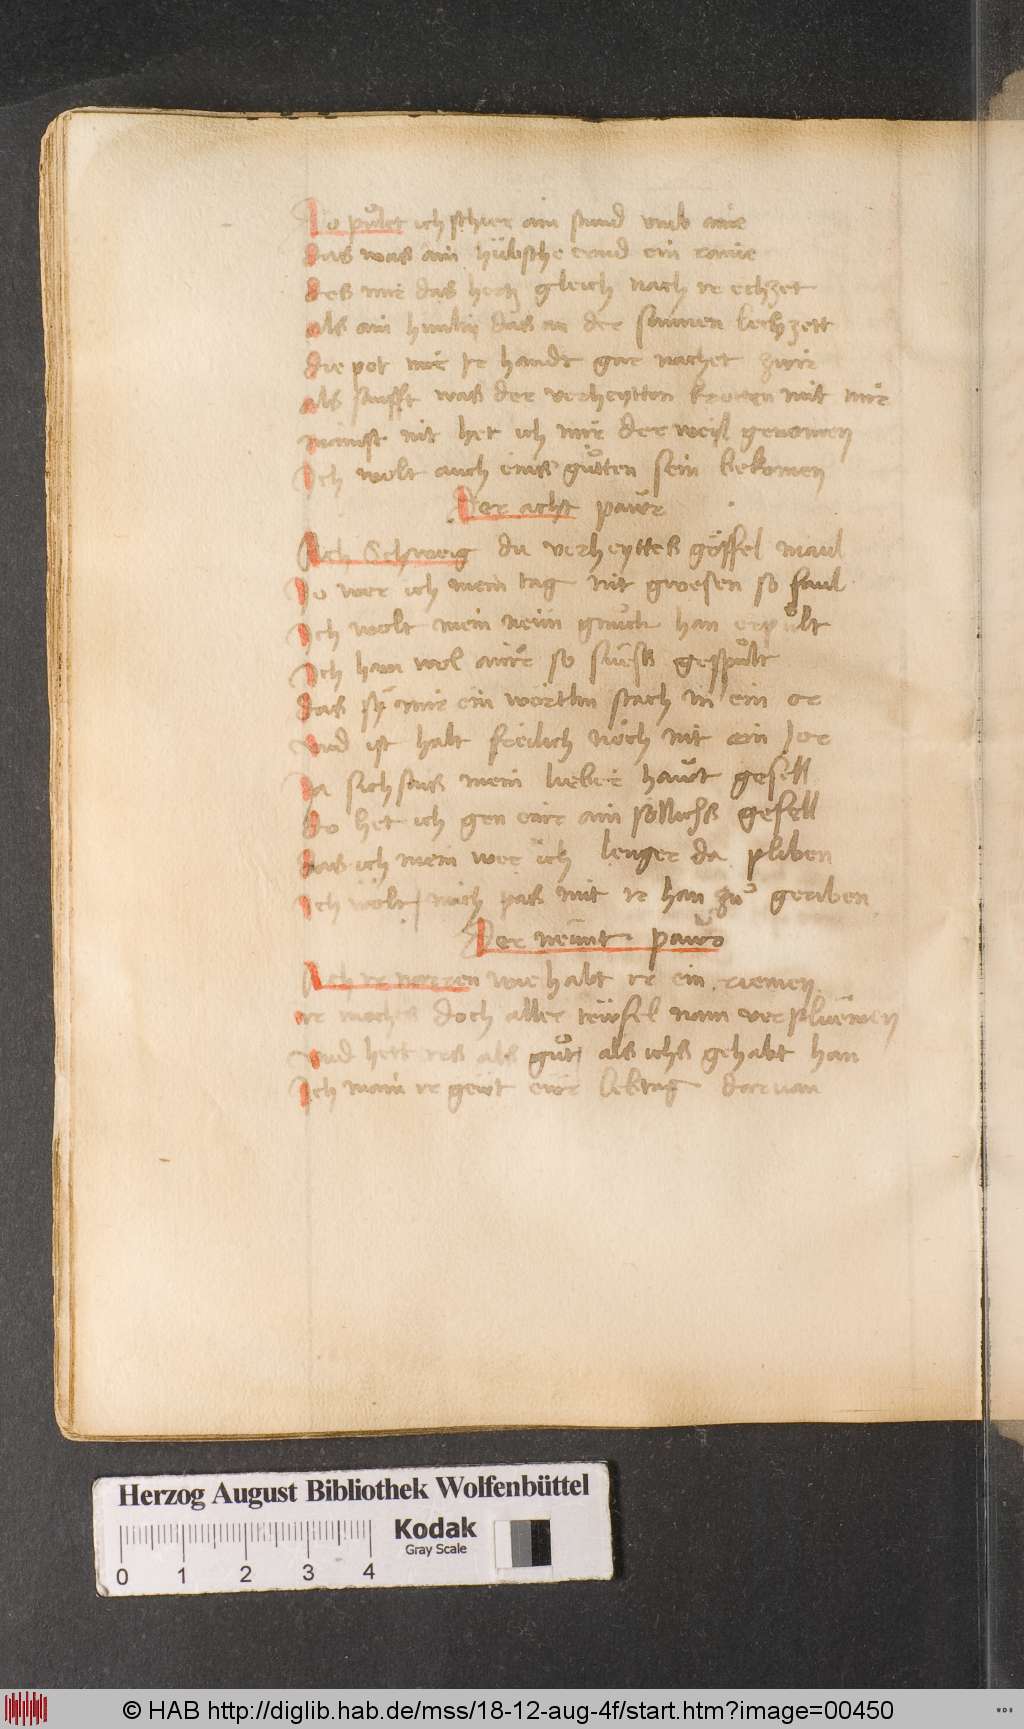 Jo půlet ich schier ain stund vmb ain
das was ain hübsche ein
des mir das hertz gleich nach ir echzet
als ain hündlin das an der sunnen lechzett
die pot mir ir handt gar nachet zwir
als sanfft was der verheytten kroten mit mir
mainst nit het ich mir der weyl genomen
Ich wolt auch eins gůtten sein bekomen
Der acht pawr
Ach Schweig du verheyttes göffel maul
Jo wer ich mein tag nit gwesen so faul
Ich wolt mein neun han erpůlt
Ich han wol ainer so suess gespůlt
das sy mir ein wörtlin stach in ein or
vnd ist halt freilich noch nit ein Jor
Da sich sass mein lieber hawt gesell
do het ich gen einr ain söllichs gefell
das ich mein wer ich lenger da pliben
Ich wolt mich pas mit ir han zů geriben
Der neünt pawr
Ach ir narren wie habt ir ein riemen
ir mochts doch aller tewfel nam verplüemen
vnd hett irs als gůt als ichs gehabt han
Ich main ir geüt ewr lebtag daruan
Herzog August Bibliothek Wolfenbüttel
Kodak
Gray Scale
0 1 2 3 4
© HAB http://diglib.hab.de/mss/18-12-aug-4f/start.htm?image=00450